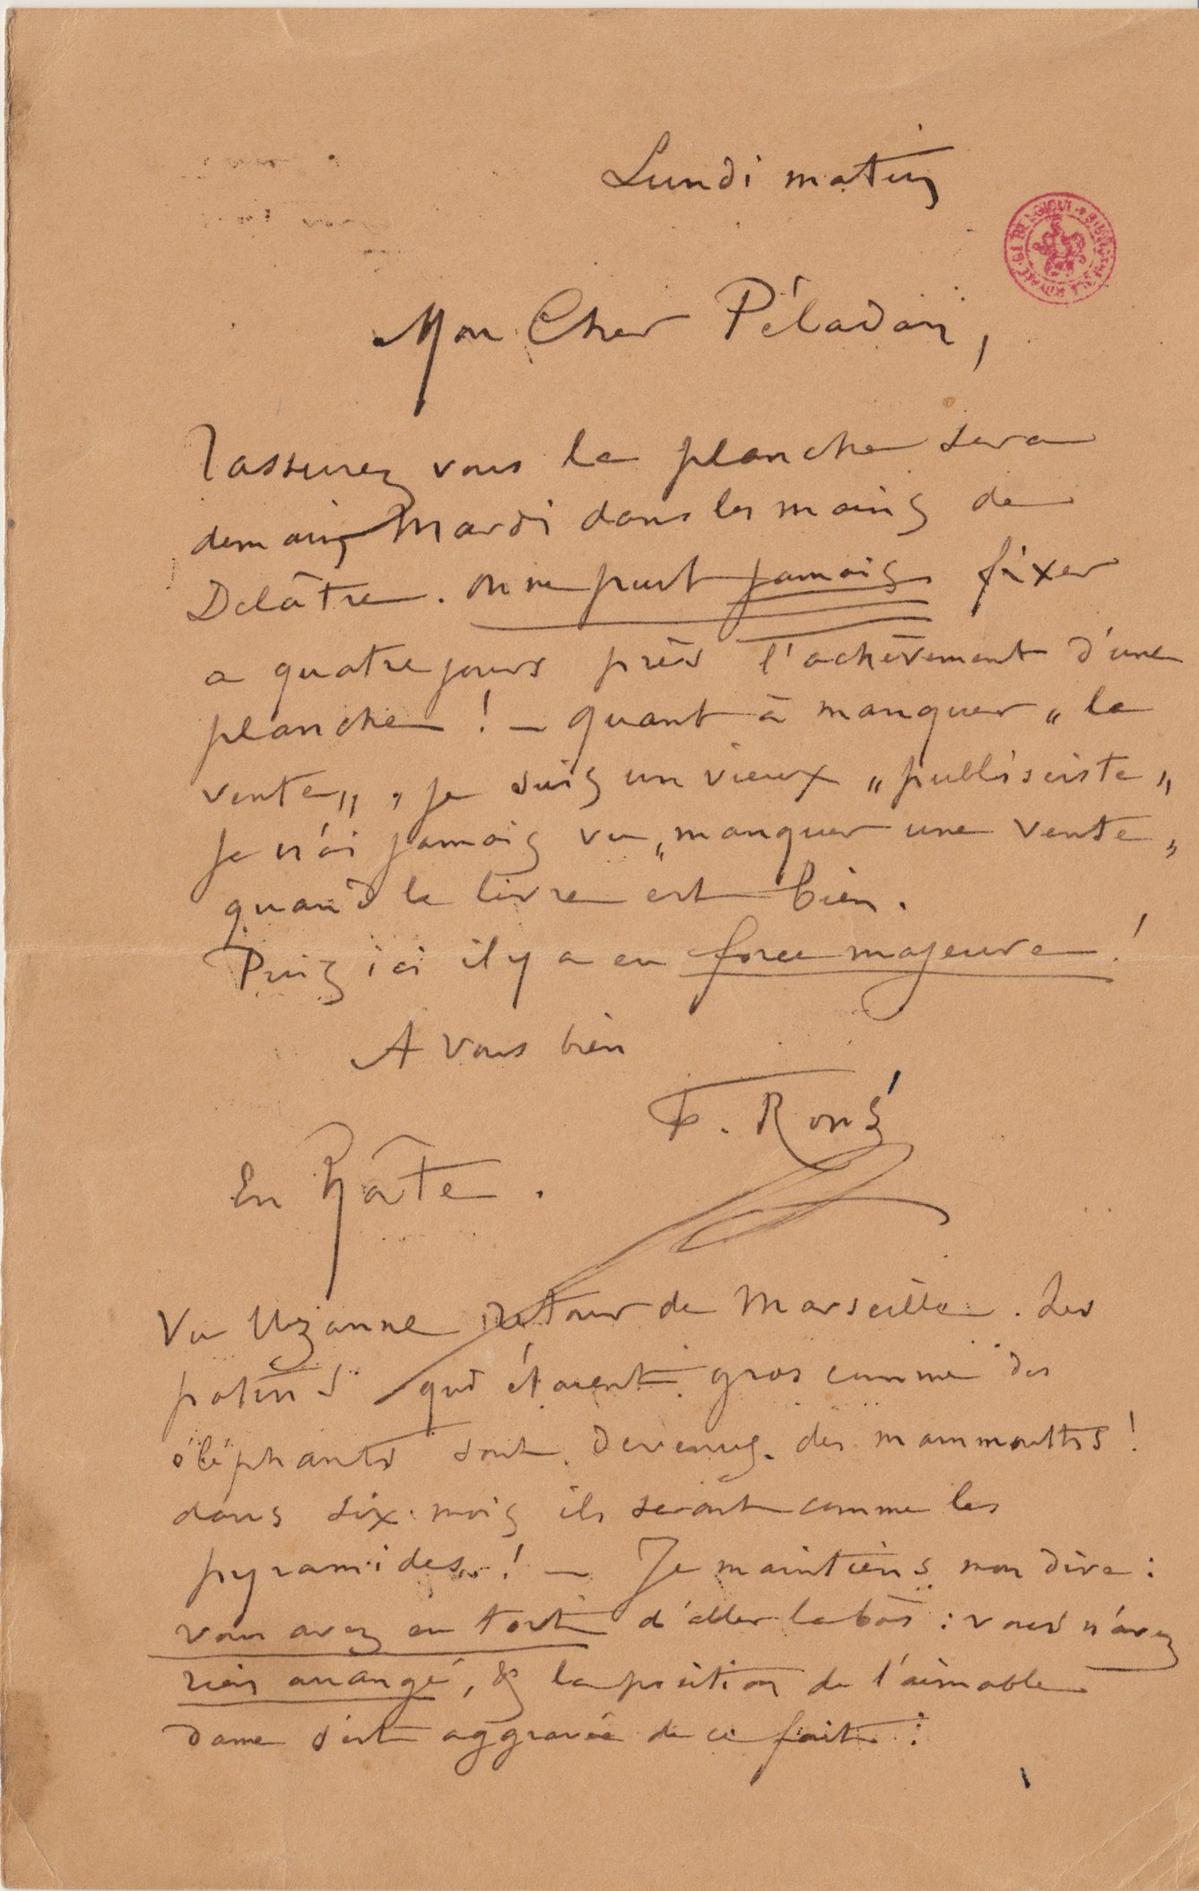 Lundi matin
Mon Cher Péladan,
Rassurez vous la planche sera
demain Mardi dans les mains de
Delâtre. On ne peut jamais fixer
a quatre jours près l'achèvement d'une
planche ! — Quant à manquer „la
vente„, je suis un vieux „publiciste„
je n'ai jamais vu „manquer une vente„
quand le livre est bien.
Puis ici il y a eu force majeure !
A vous bien
F. Rops
En hâte.
Vu Uzanne retour de Marseille. Les
potins qui étaient gros comme des
éléphants sont devenus des mammouths !
dans six mois ils seront comme les
pyramides ! — Je maintiens mon dire :
vous avez eu tort d'aller là bas : vous n'avez
rien arrangé, & la position de l'aimable
dame s'est aggravée de ce fait :